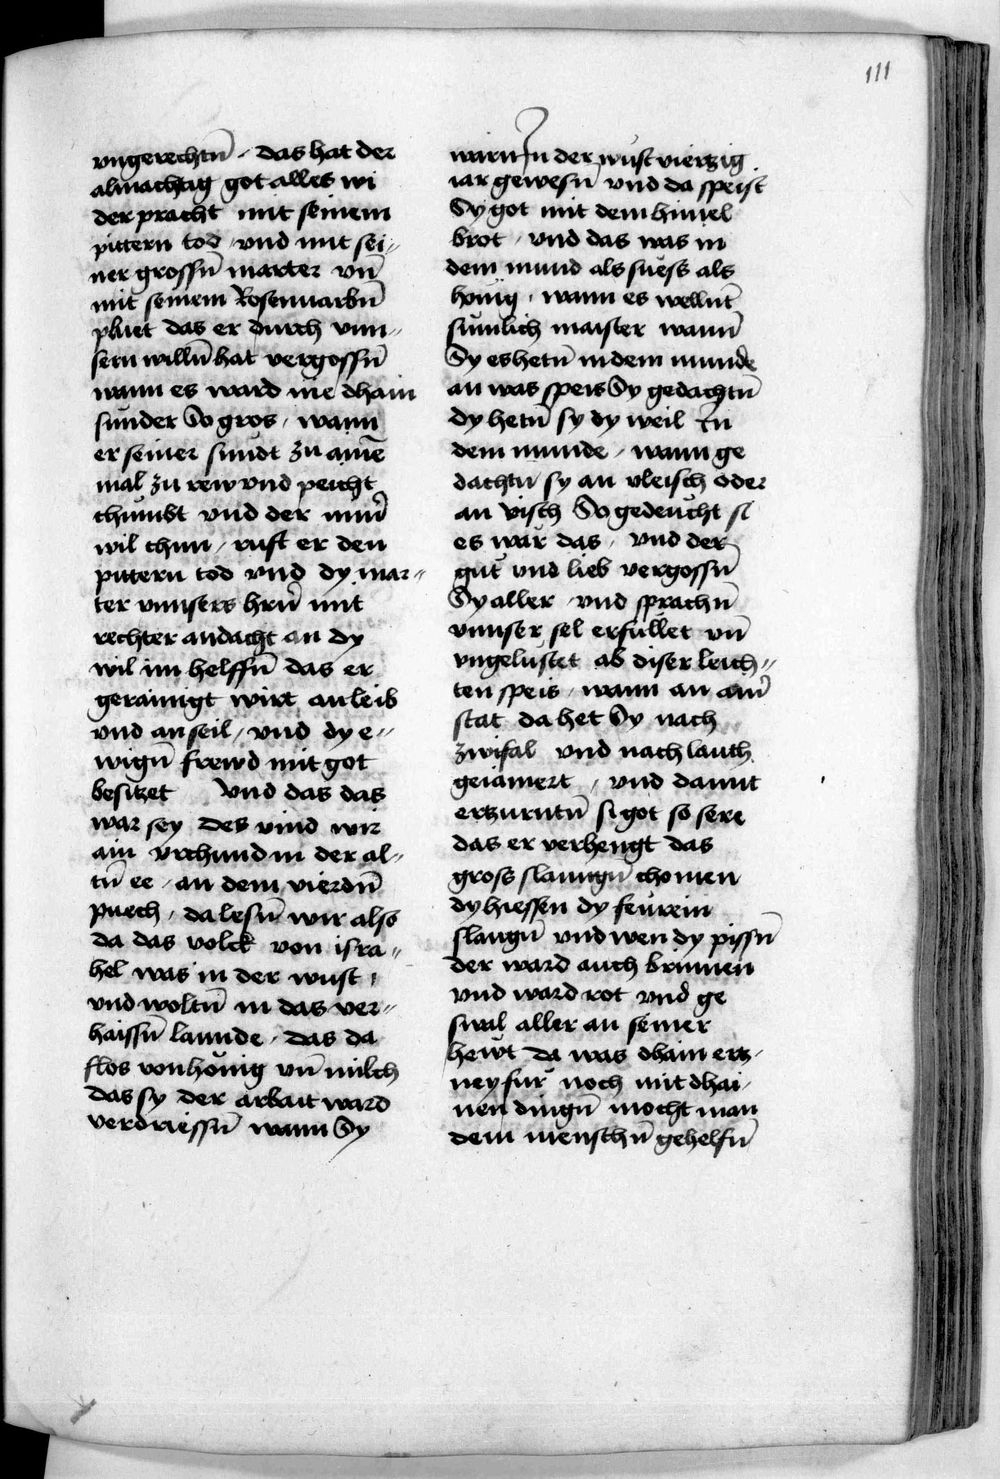 111
vngerechtn̄ · das hat der
almachtig got alles wi
der pracht mit seinem
pittern tod / vnd mit sei-
ner grossn̄ marter vn̄
mit seinem Rosenuarbn̄
pluet das er durch vnn-
sern willn̄ hat vergossn̄
wann es ward nie dhain
sunder So gros / wann
er seiner sundt zu aine͂
mal zu rew vnd peicht
chumbt vnd der nim̄
wil thun / rufft er den
pittern tod vnd dy mar-
ter vnnsers hrn̄ mit
rechter andacht an dy
wil im helffn̄ das er
gerainigt wirt an leib
vnd an seil / vnd dy e-
wign̄ frewd mit got
besitzet Vnd das das
war sey des vind wir
ain vrchund in der al-
tn̄ ee / an dem vierdn̄
puech / da lesn̄ wir also
da das volck von isra-
hel was in der wust /
vnd woltn̄ in das ver-
haissn̄ lannde / das da
flos von hönig vn̄ milch
das sy der arbait ward
verdriessn̄ wann Sy
warn̄ In der wust viertzig
iar gewesn̄ vnd da speist
Sy got mit dem himel
brot / vnd das was in
dem mund als suess als
hönig / wann es wellnt̄
sumlich maister wann̄
Sy es hetn̄ in dem munde
an was speis Sy gedachtn̄
dy hetn̄ sy dy weil In
dem munde / wann ge
dachtn̄ sy an vleisch oder
an visch So gedeucht si
es wär das / vnd der
gut vnd lieb vergossn̄
Sy aller / vnd sprachn̄
vnnser sel erfullet vn̄
vngelustet ab diser leich-
ten speis / wann an ain̄
stat da het Sy nach
zwifal vnd nach lauch
geiamert / vnd damit
ertzurntn̄ si got so sere
das er verhengt das
gross slanngn̄ chomen
dy hiessen dy feurein
slangn̄ vnd wen dy pissn̄
der ward auch brinnen
vnd ward rot vnd ge
swal aller an seiner
hewt da was dhain ertz-
ney fur noch mit dhai-
nen dingn̄ mocht man
dem menschn̄ gehelfn̄